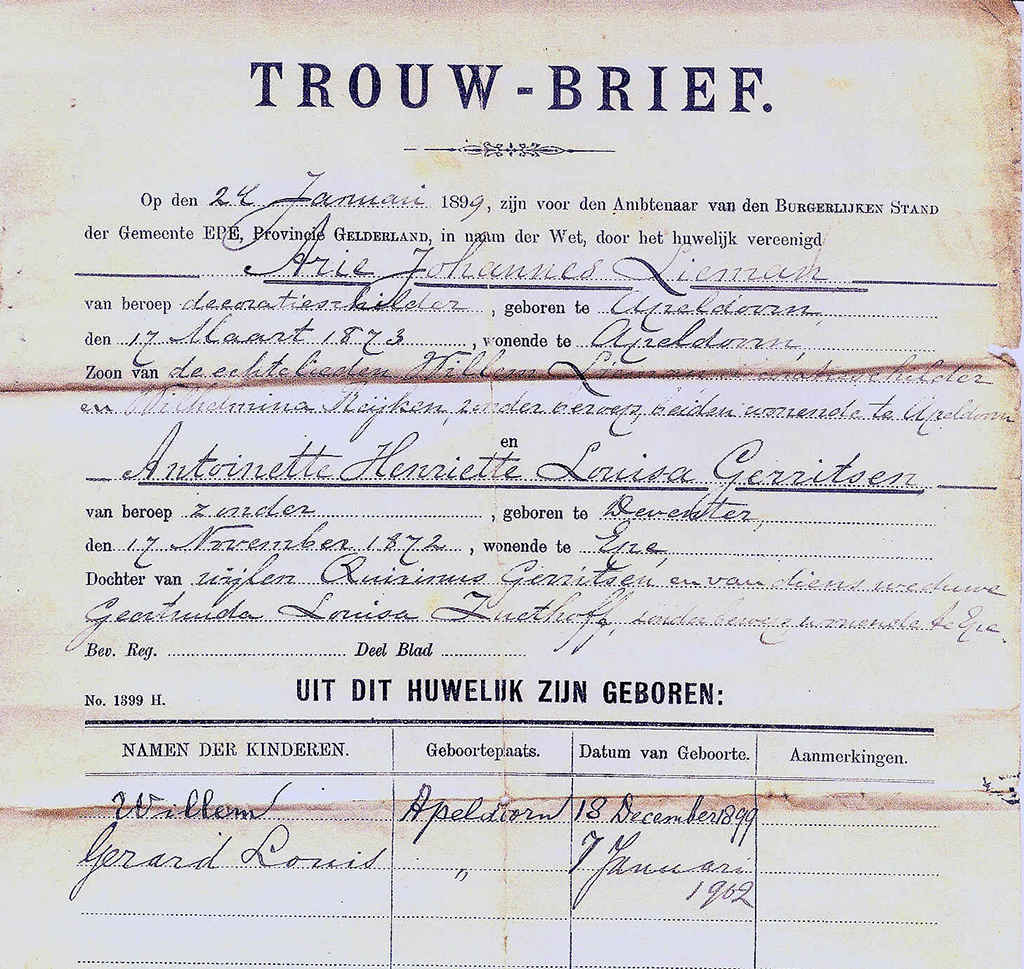 TROUW-BRIEF.
Op den 24 Januari 1899, zijn voor den Ambtenaar van den BURGERLIJKEN STAND
der Gemeente EPE, Provincie GELDERLAND, in naam der Wet, door het huwelijk vereenigd
Arie Johannes Lieman
van beroep decoratieschilder, geboren te Apeldoorn,
den 17 Maart 1873, wonende te Apeldoorn,
Zoon van de echtelieden Willem Lieman, schilder
en Wilhelmina Kuijken, zonder beroep, beiden wonende te Apeldoorn
en
Antoinette Henriette Louisa Gerritsen
van beroep zonder, geboren te Deventer,
den 17 November 1872, wonende te Epe,
Dochter van wijlen Quirinus Gerritsen, en van diens weduwe
Geertruida Louisa Zuethoff, zonder beroep, wonende te Epe.
Bev. Reg. Deel Blad
No. 1399 H. UIT DIT HUWELIJK ZIJN GEBOREN:
NAMEN DER KINDEREN. Geboorteplaats. Datum van Geboorte. Aanmerkingen.
Willem Apeldoorn 13 December 1899
Gerard Louis „ 7 Januari
1902